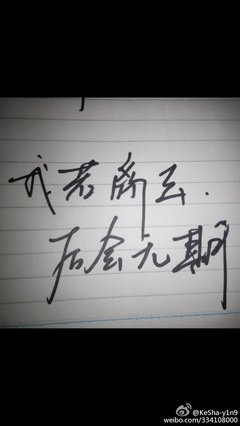 我若离去.
后会无期
@KeSha-y1n9
weibo.com/334108000